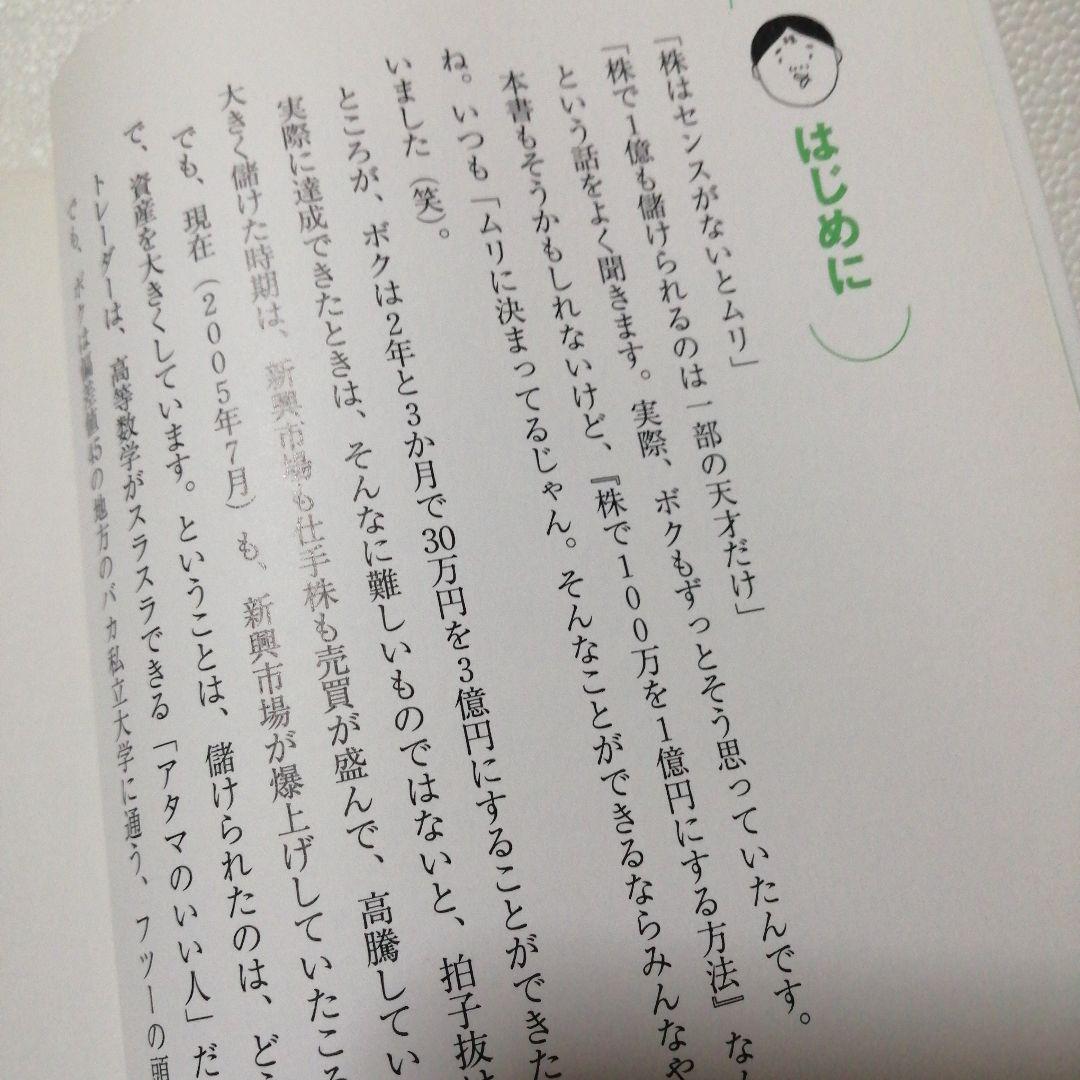 はじめに
「株はセンスがないとムリ」
「株で1億も儲けられるのは一部の天才だけ」
という話をよく聞きます。実際、ボクもずっとそう思っていたんです。
本書もそうかもしれないけど、『株で100万を1億円にする方法』な
ね。いつも「ムリに決まってるじゃん。そんなことができるならみんなや
いました（笑）。
ところが、ボクは2年と3か月で30万円を3億円にすることができた
実際に達成できたときは、そんなに難しいものではないと、拍子抜け
大きく儲けた時期は、新興市場も仕手株も売買が盛んで、高騰してい
でも、現在（2005年7月）も、新興市場が爆上げしていたころ
で、資産を大きくしています。ということは、儲けられたのは、ど
トレーダーは、高等数学がスラスラできる「アタマのいい人」だ
でも、ボクは偏差値45の地方のバカ私立大学に通う、フツーの頭